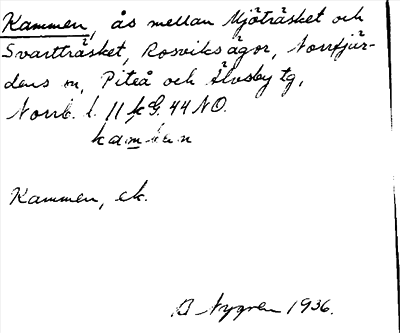 Kammen, ås mellan Mjöträsket och
Svartträsket, Rosviksägor, Norrfjär-
dens sn, Piteå och Älvsby tg,
Norrb. l. 11 k G. 44 NO.
Kammen, ek.
B Nygren 1936.